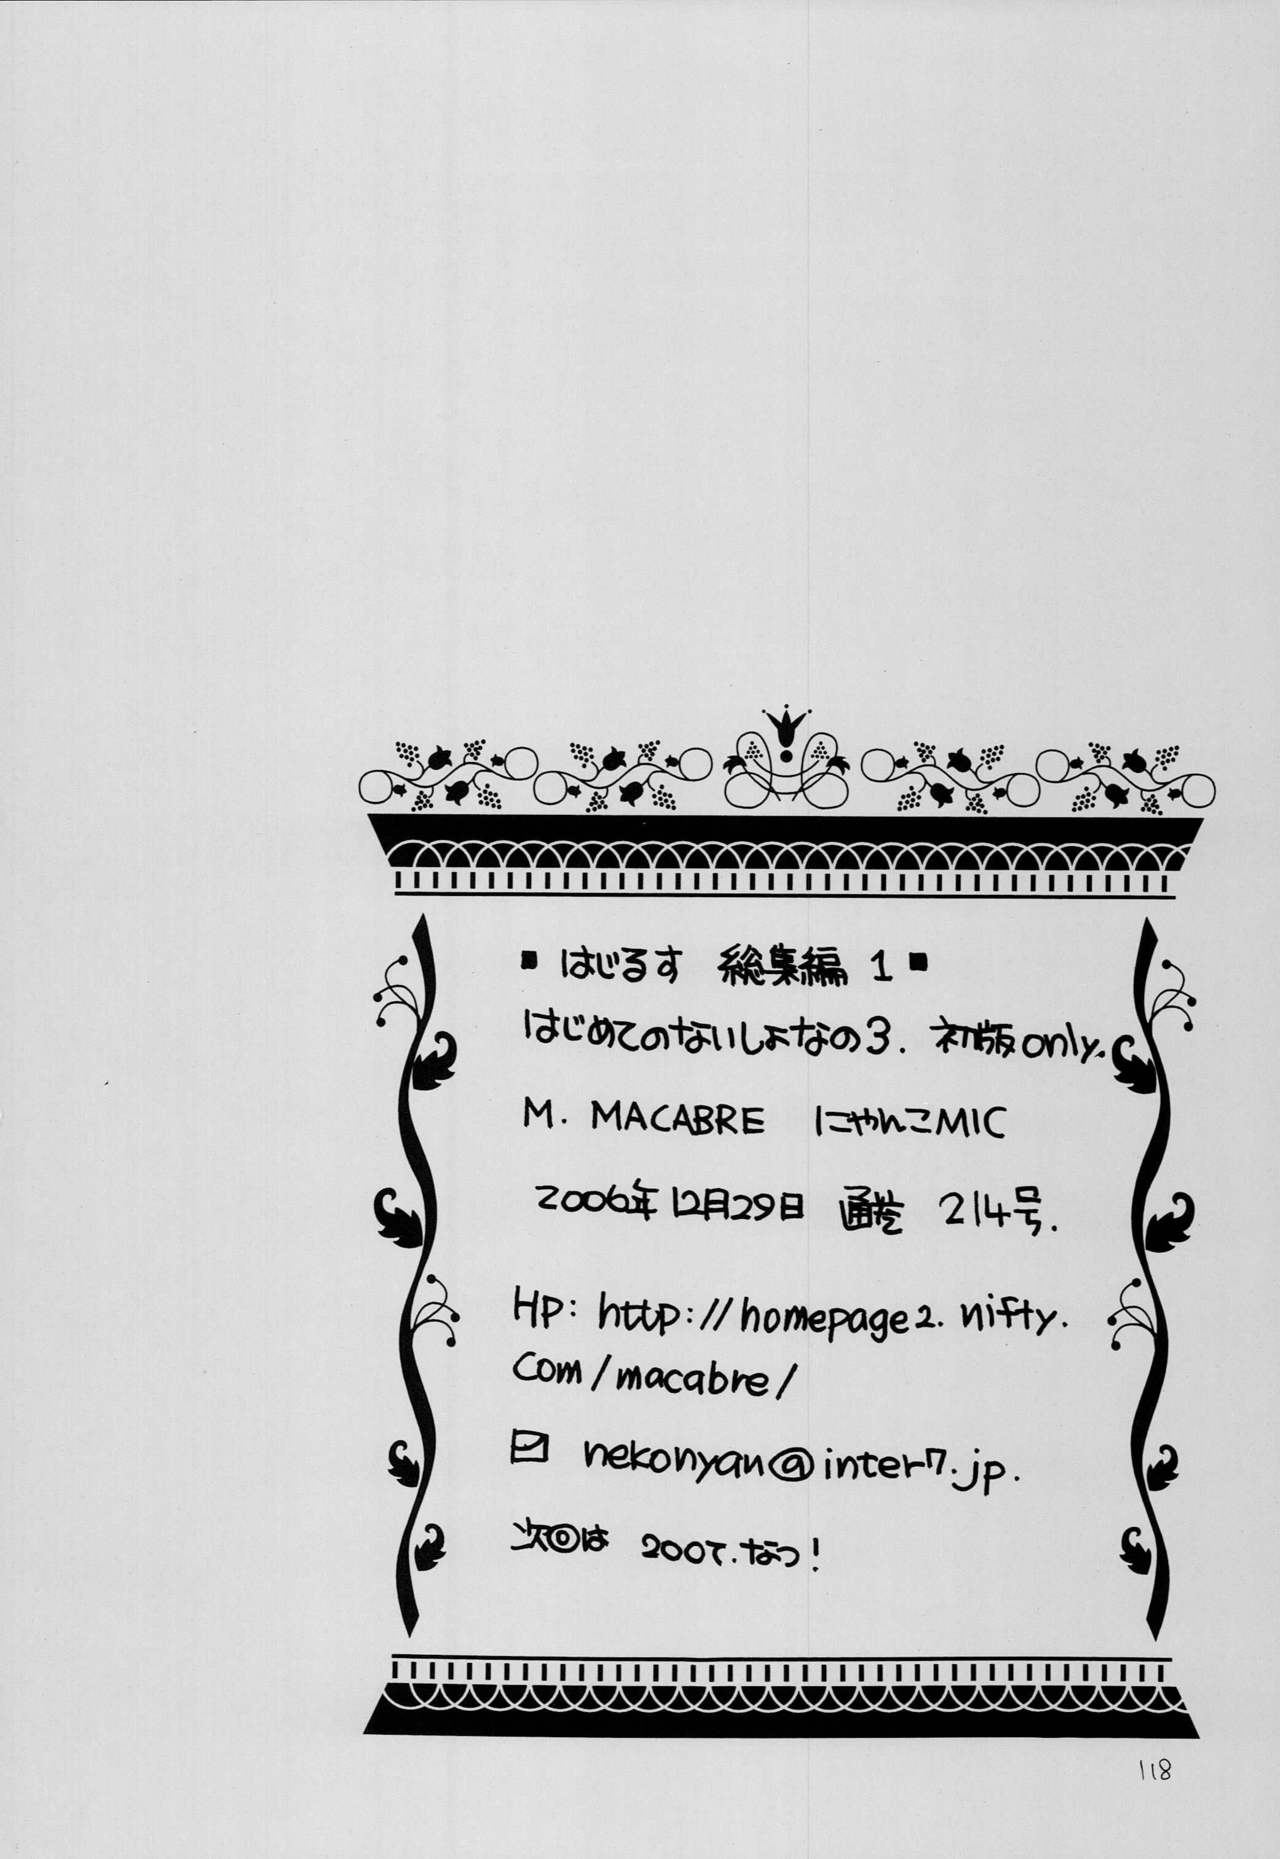 ■ はじるす 総集編 1 ■
はじめてのないしょなの3. 初版only.
M. MACABRE にゃんこMIC
2006年12月29日 通巻 214号.
Hp: http://homepage2.nifty.
com/macabre/
nekonyan@inter7.jp.
次回は 2007.なつ!
118